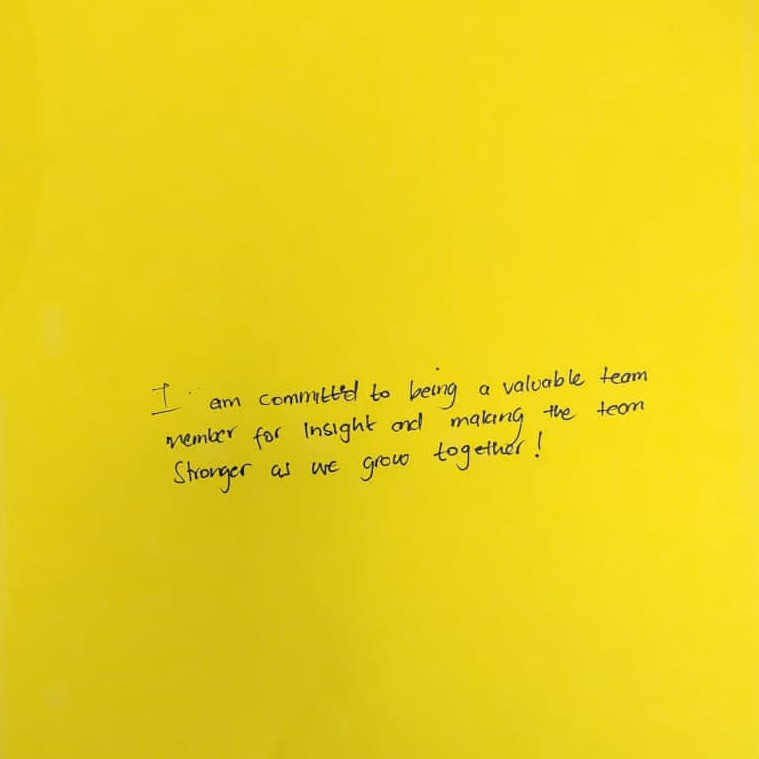 I am committed to being a valuable team
member for Insight and making the team
Stronger as we grow together!